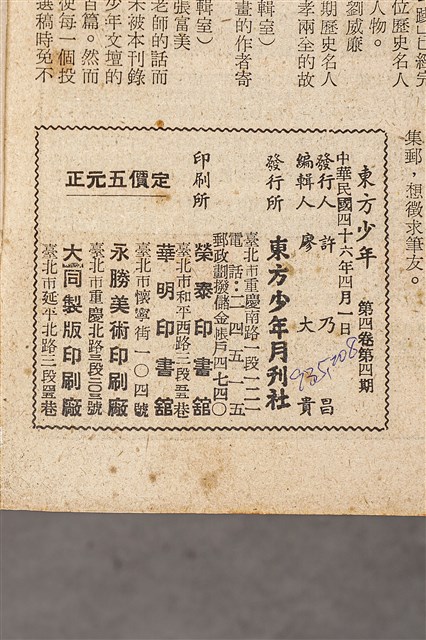 集郵,想徵求筆友。
東方少年 第四卷第四期
中華民國四十六年四月一日
發行人 許乃昌
編輯人 廖大貴
發行所 東方少年月刊社
臺北市重慶南路一段一二一
電話:二四五一五
郵政劃撥儲金帳戶四七四〇
印刷所 榮泰印書舘
臺北市和平西路三段五巷
華明印書舘
臺北市懷寧街一〇四號
永勝美術印刷廠
臺北市重慶北路三段三〇三號
大同製版印刷廠
臺北市延平北路三段五巷
定價五元正
位歷史名人
人物。
劉威廉
期歷史名人
孝兩全的故
輯室)
畫的作者寄
輯室)
張富美
老師的話而
未被本刊錄
少年文壇的
百篇。然而
使每一個投
選稿時免不